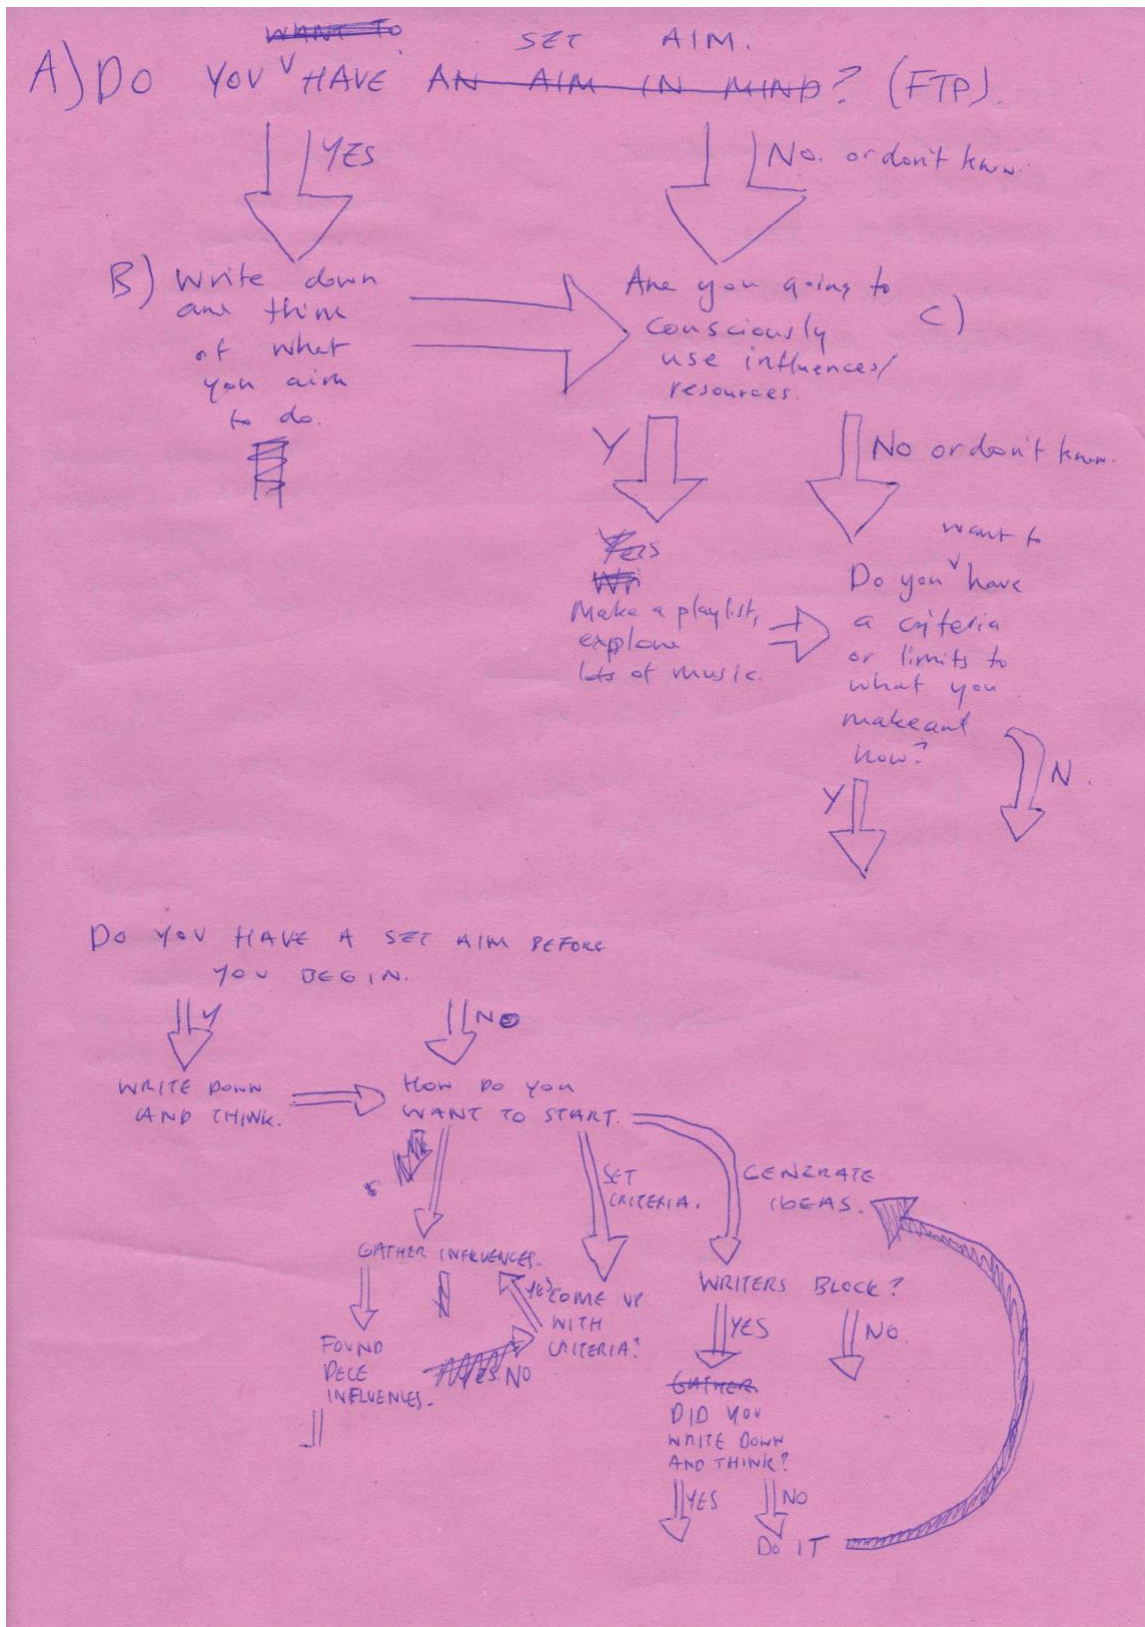 WANT TO
SET AIM.
A) DO YOU HAVE AN AIM IN MIND? (FTP).
YES
No. or don't know.
B) Write down
and think
of what
you aim
to do.
Are you going to
consciously
use influences/
resources.
C)
Y
No or don't know.
Yes
Wri
Make a playlist,
explore
lots of music.
want to
Do you have
a criteria
or limits to
what you
make and
how?
Y
N.
DO YOU HAVE A SET AIM BEFORE
YOU BEGIN.
Y
NO
WRITE DOWN
AND THINK.
HOW DO YOU
WANT TO START.
SET
CRITERIA.
GENERATE
IDEAS.
GATHER INFLUENCES.
YES
COME UP
WITH
CRITERIA?
WRITERS BLOCK?
YES
NO.
FOUND
DECE
INFLUENCES.
YES NO
GATHER
DID YOU
WRITE DOWN
AND THINK?
YES
NO
DO IT